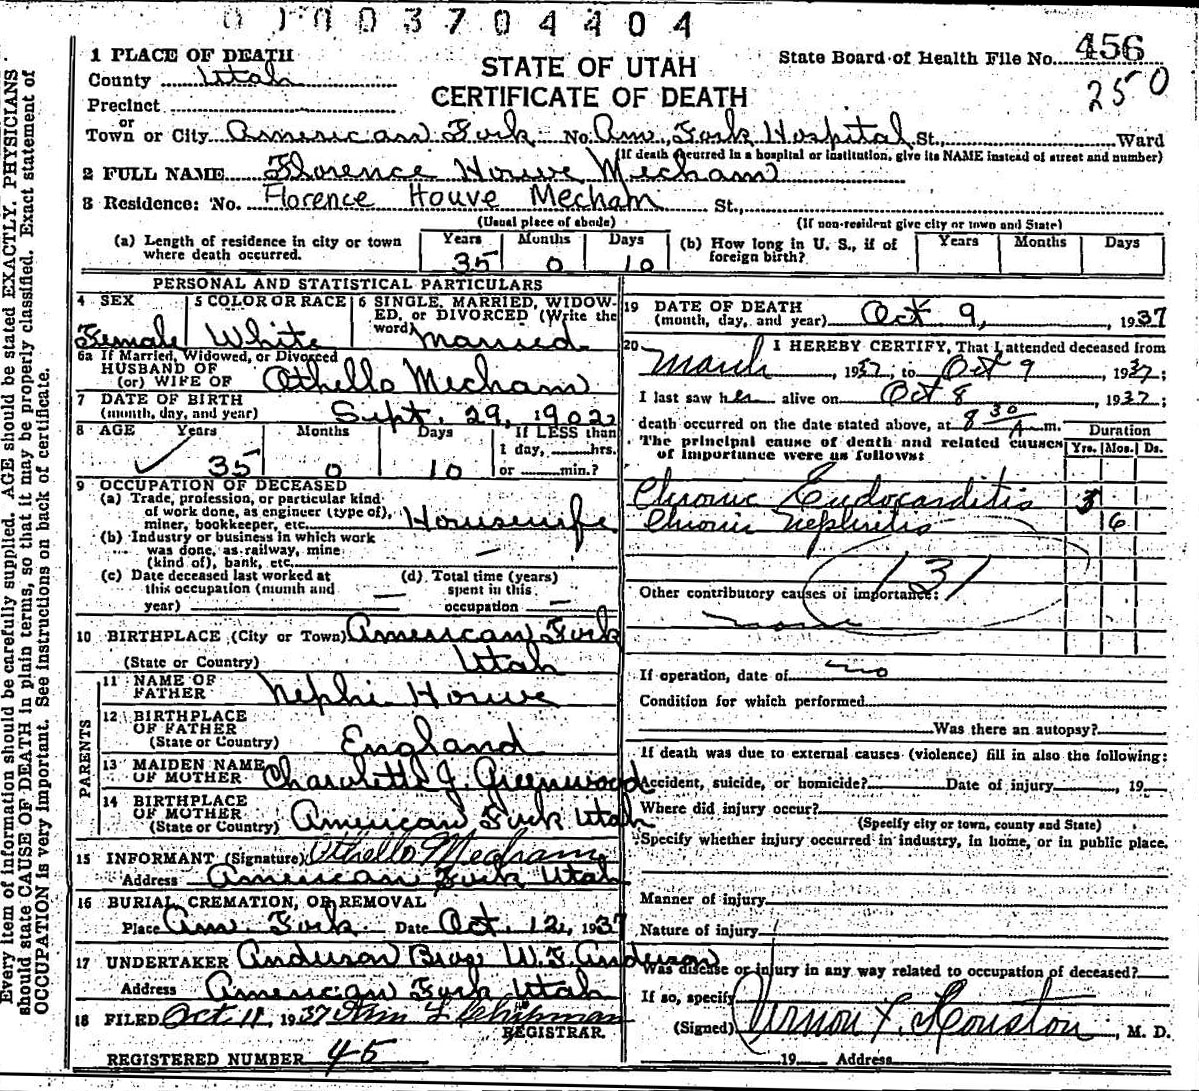 0 1 0 0 3 7 0 4 4 0 4
Every item of information should be carefully supplied. AGE should be stated EXACTLY. PHYSICIANS
should state CAUSE OF DEATH in plain terms, so that it may be properly classified. Exact statement of
OCCUPATION is very important. See instructions on back of certificate.
STATE OF UTAH
CERTIFICATE OF DEATH
State Board of Health File No. 456
250
1 PLACE OF DEATH
County Utah
Precinct
or
Town or City American Fork No. Am. Fork Hospital St. Ward
(If death occurred in a hospital or institution, give its NAME instead of street and number)
2 FULL NAME Florence Houve Mecham
3 Residence: No. Florence Houve Mecham St.,
(Usual place of abode) (If non-resident give city or town and State)
(a) Length of residence in city or town where death occurred. Years 35 Months 0 Days 10
(b) How long in U. S., if of foreign birth? Years Months Days
PERSONAL AND STATISTICAL PARTICULARS
4 SEX Female
5 COLOR OR RACE White
6 SINGLE, MARRIED, WIDOWED, or DIVORCED (Write the word) Married
6a If Married, Widowed, or Divorced
HUSBAND OF
(or) WIFE OF Othello Mecham
7 DATE OF BIRTH
(month, day, and year) Sept. 29, 1902
8 AGE Years 35 Months 0 Days 10 If LESS than
1 day, hrs.
or min.?
9 OCCUPATION OF DECEASED
(a) Trade, profession, or particular kind
of work done, as engineer (type of),
miner, bookkeeper, etc. Housewife
(b) Industry or business in which work
was done, as railway, mine
(kind of), bank, etc. —
(c) Date deceased last worked at
this occupation (month and
year) —
(d) Total time (years)
spent in this
occupation —
10 BIRTHPLACE (City or Town) American Fork
(State or Country) Utah
PARENTS
11 NAME OF
FATHER Nephi Houve
12 BIRTHPLACE
OF FATHER
(State or Country) England
13 MAIDEN NAME
OF MOTHER Charolette J. Greenwood
14 BIRTHPLACE
OF MOTHER
(State or Country) American Fork Utah
15 INFORMANT (Signature) Othello Mecham
Address American Fork Utah
16 BURIAL, CREMATION, OR REMOVAL
Place Am. Fork Date Oct. 12, 1937
17 UNDERTAKER Anderson Bros W. F. Anderson
Address American Fork Utah
18 FILED Oct 11, 1937 Chipman
REGISTRAR
REGISTERED NUMBER 45
19 DATE OF DEATH
(month, day, and year) Oct 9, 1937
20 I HEREBY CERTIFY, That I attended deceased from
March, 1937, to Oct 9 1937;
I last saw her alive on Oct 8 1937;
death occurred on the date stated above, at 8 30 A m.
The principal cause of death and related causes
of importance were as follows:
Duration
Yrs. Mos. Ds.
Chronic Endocarditis 3
Chronic Nephritis 6
131
Other contributory causes of importance:
none
If operation, date of no
Condition for which performed
Was there an autopsy?
If death was due to external causes (violence) fill in also the following:
Accident, suicide, or homicide? Date of injury , 19
Where did injury occur?
(Specify city or town, county and State)
Specify whether injury occurred in industry, in home, or in public place.
Manner of injury
Nature of injury
Was disease or injury in any way related to occupation of deceased?
If so, specify
(Signed) Vernon F. Houston, M. D.
19 Address